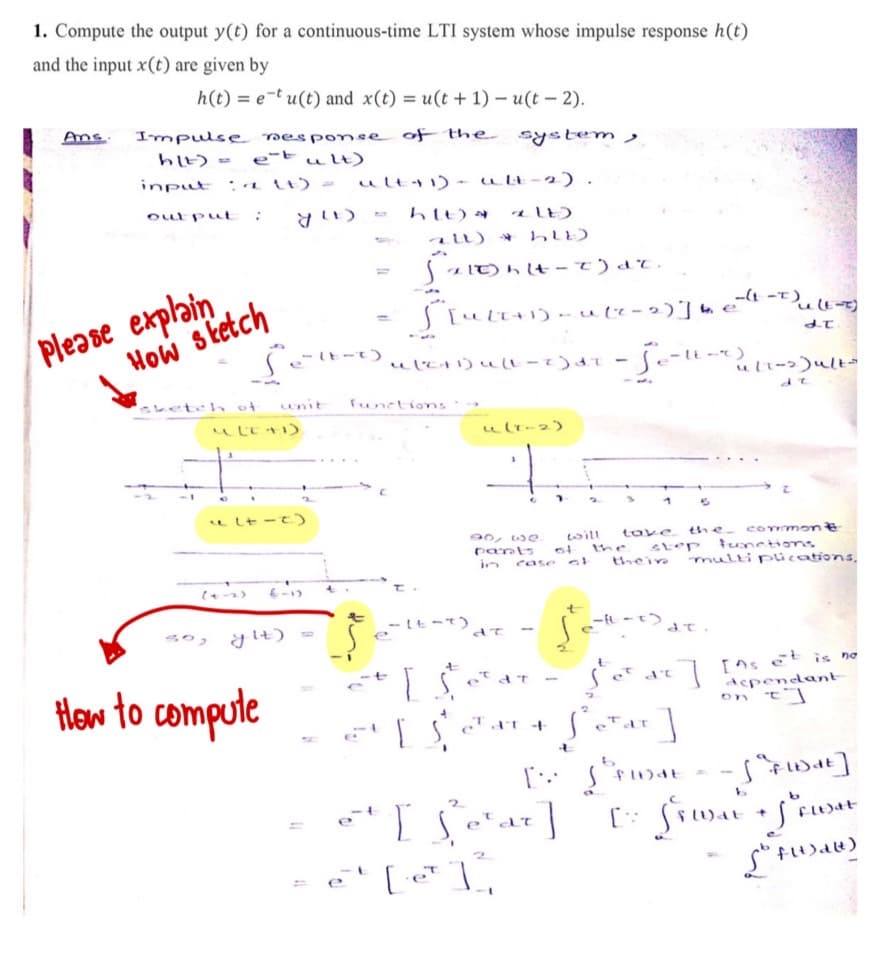 1. Compute the output y(t) for a continuous-time LTI system whose impulse response h(t)
and the input x(t) are given by
h(t) = e^{-t} u(t) and x(t) = u(t + 1) – u(t – 2).
Ans. Impulse response of the system,
h(t) = e^{-t} u(t)
input : x(t) = u(t+1) - u(t-2).
output : y(t) = h(t) * x(t)
= x(t) * h(t)
= ∫_{-∞}^{∞} x(τ) h(t-τ) dτ.
= ∫_{-∞}^{∞} [u(τ+1) - u(τ-2)] e^{-(t-τ)} u(t-τ) dτ
Please explain
How sketch
= ∫_{-∞}^{∞} e^{-(t-τ)} u(τ+1) u(t-τ) dτ - ∫_{-∞}^{∞} e^{-(t-τ)} u(τ-2) u(t-
dτ
sketch of unit functions :-
u(τ+1) u(τ-2)
1 1
-2 -1 0 1 2 τ
0 1 2 3 4 5 τ
u(t-τ)
(t-2) (t-1) t τ
so, we will take the common
parts of the step functions
in case of their multiplications.
so, y(t) = ∫_{-1}^{t} e^{-(t-τ)} dτ - ∫_{2}^{t} e^{-(t-τ)} dτ.
How to compute
= e^{-t} [ ∫_{-1}^{t} e^{τ} dτ - ∫_{2}^{t} e^{τ} dτ ] [As e^{-t} is no
dependant
on τ]
= e^{-t} [ ∫_{-1}^{t} e^{τ} dτ + ∫_{t}^{2} e^{τ} dτ ]
[∵ ∫_{a}^{b} f(t) dt = - ∫_{b}^{a} f(t) dt]
= e^{-t} [ ∫_{-1}^{2} e^{τ} dτ ] [∵ ∫_{a}^{c} f(t) dt + ∫_{c}^{b} f(t) dt
= ∫_{a}^{b} f(t) d(t)
= e^{-t} [e^{τ}]_{-1}^{2}